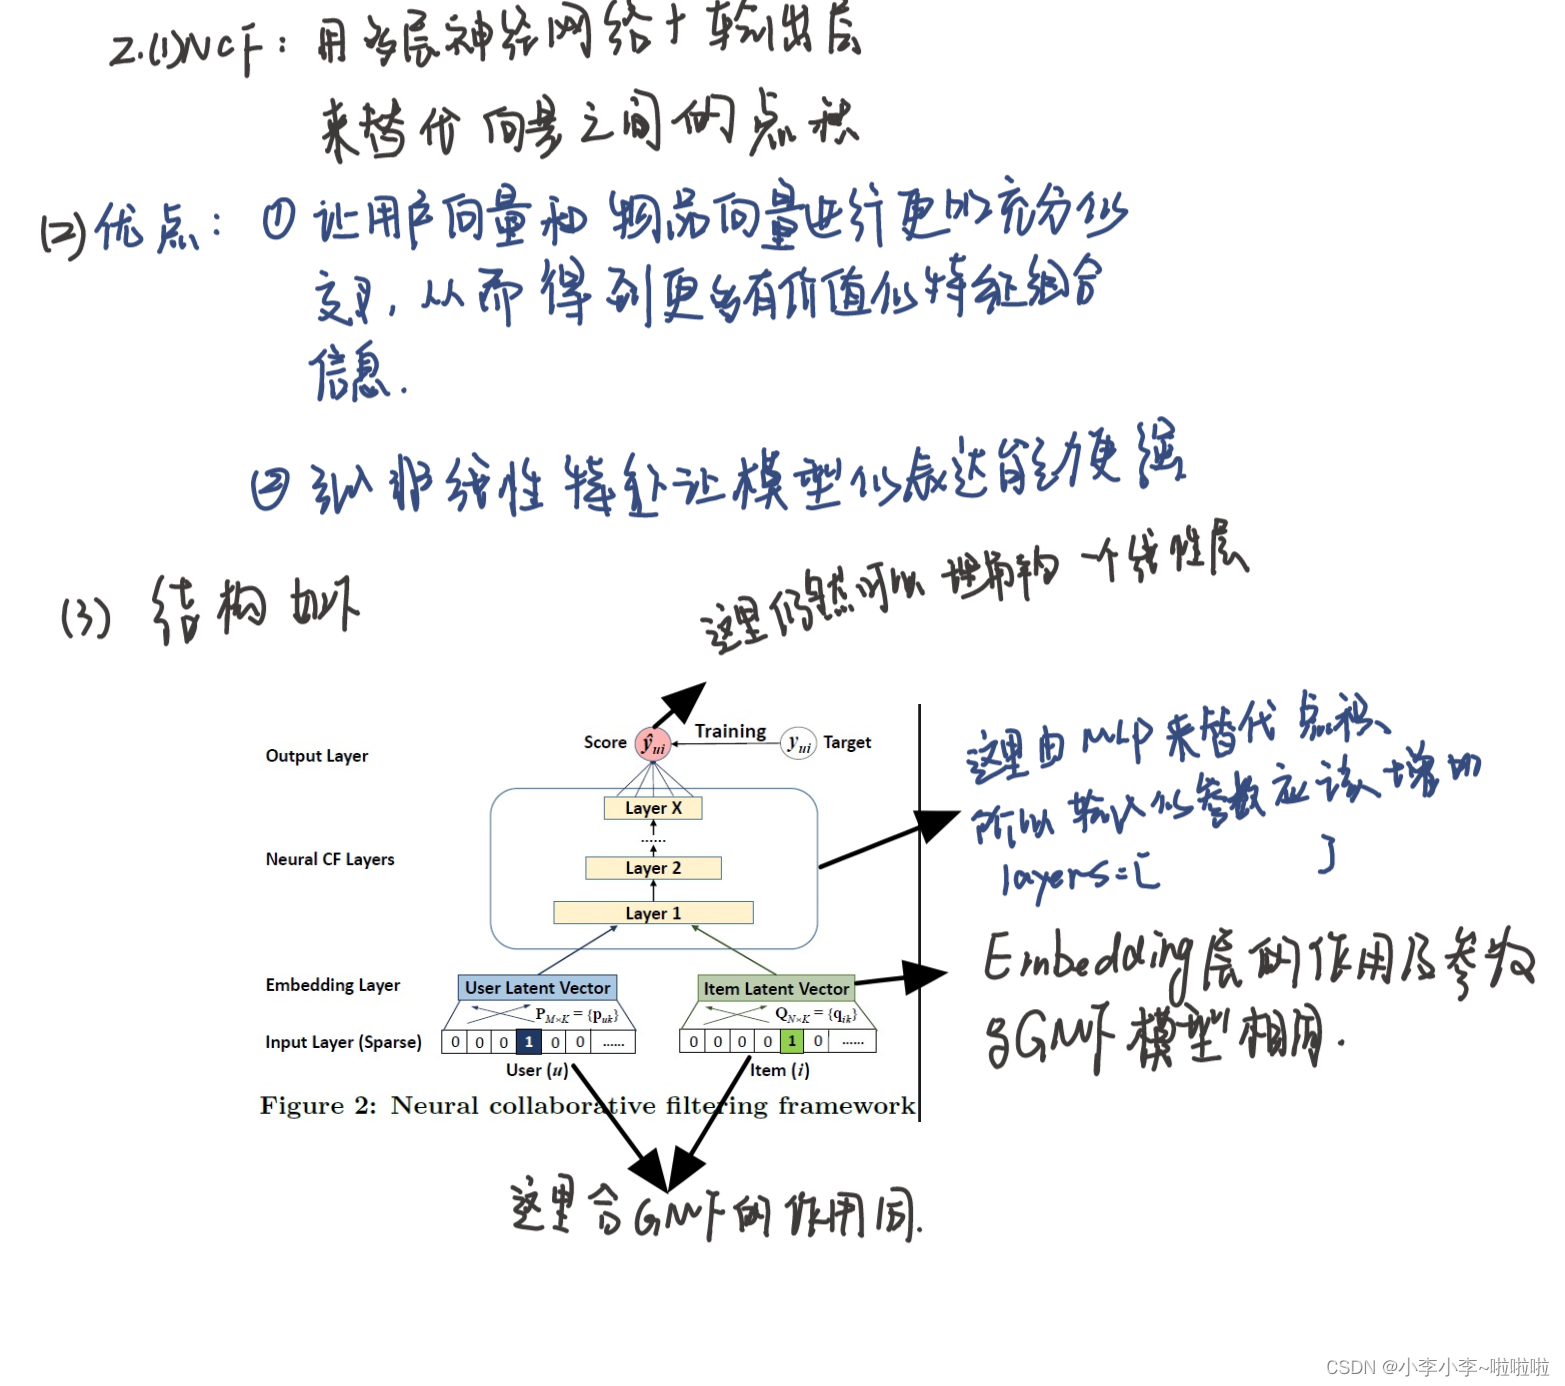 2.(1)NCF：用多层神经网络+输出层
来替代向量之间的点积
(2)优点：① 让用户向量和物品向量进行更加充分的
交叉，从而得到更多有价值的特征组合
信息.
② 引入非线性特征让模型的表达能力更强
(3) 结构如下
这里仍然可以理解为一个线性层
Score ŷui Training yui Target
Output Layer
Layer X
......
Neural CF Layers
Layer 2
Layer 1
这里由MLP来替代点积、
所以输入的参数应该增加
layers=[ ]
Embedding层的作用及参数
与GMF模型相同.
Embedding Layer User Latent Vector Item Latent Vector
P M×K = {p uk} Q N×K = {q ik}
Input Layer (Sparse) 0 0 0 1 0 0 ...... 0 0 0 0 1 0 ......
User (u) Item (i)
Figure 2: Neural collaborative filtering framework
这里合GMF的作用同.
CSDN @小李小李~啦啦啦